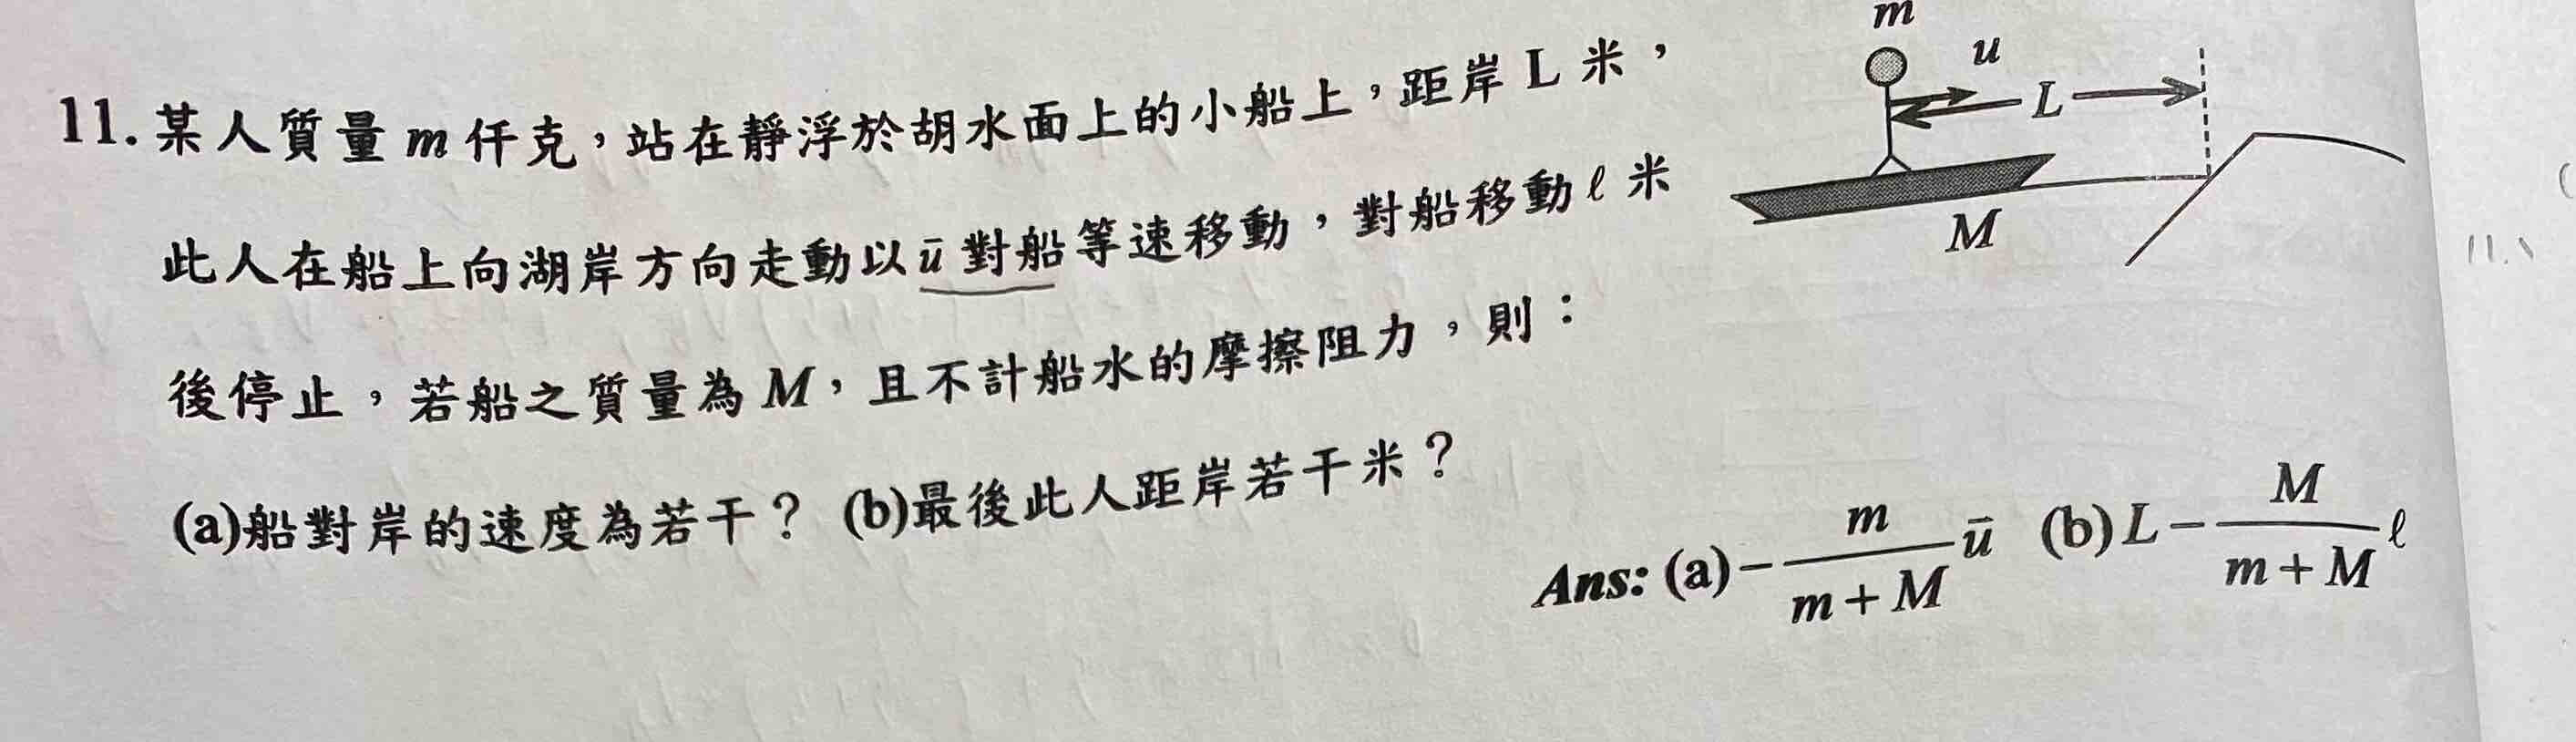 m
u
11. 某人質量 m 仟克，站在靜浮於胡水面上的小船上，距岸 L 米，
L
此人在船上向湖岸方向走動以 ū 對船等速移動，對船移動 ℓ 米
M
11.、
後停止，若船之質量為 M，且不計船水的摩擦阻力，則：
(a)船對岸的速度為若干？ (b)最後此人距岸若干米？
Ans: (a) −\frac{m}{m + M} ū (b) L − \frac{M}{m + M} ℓ